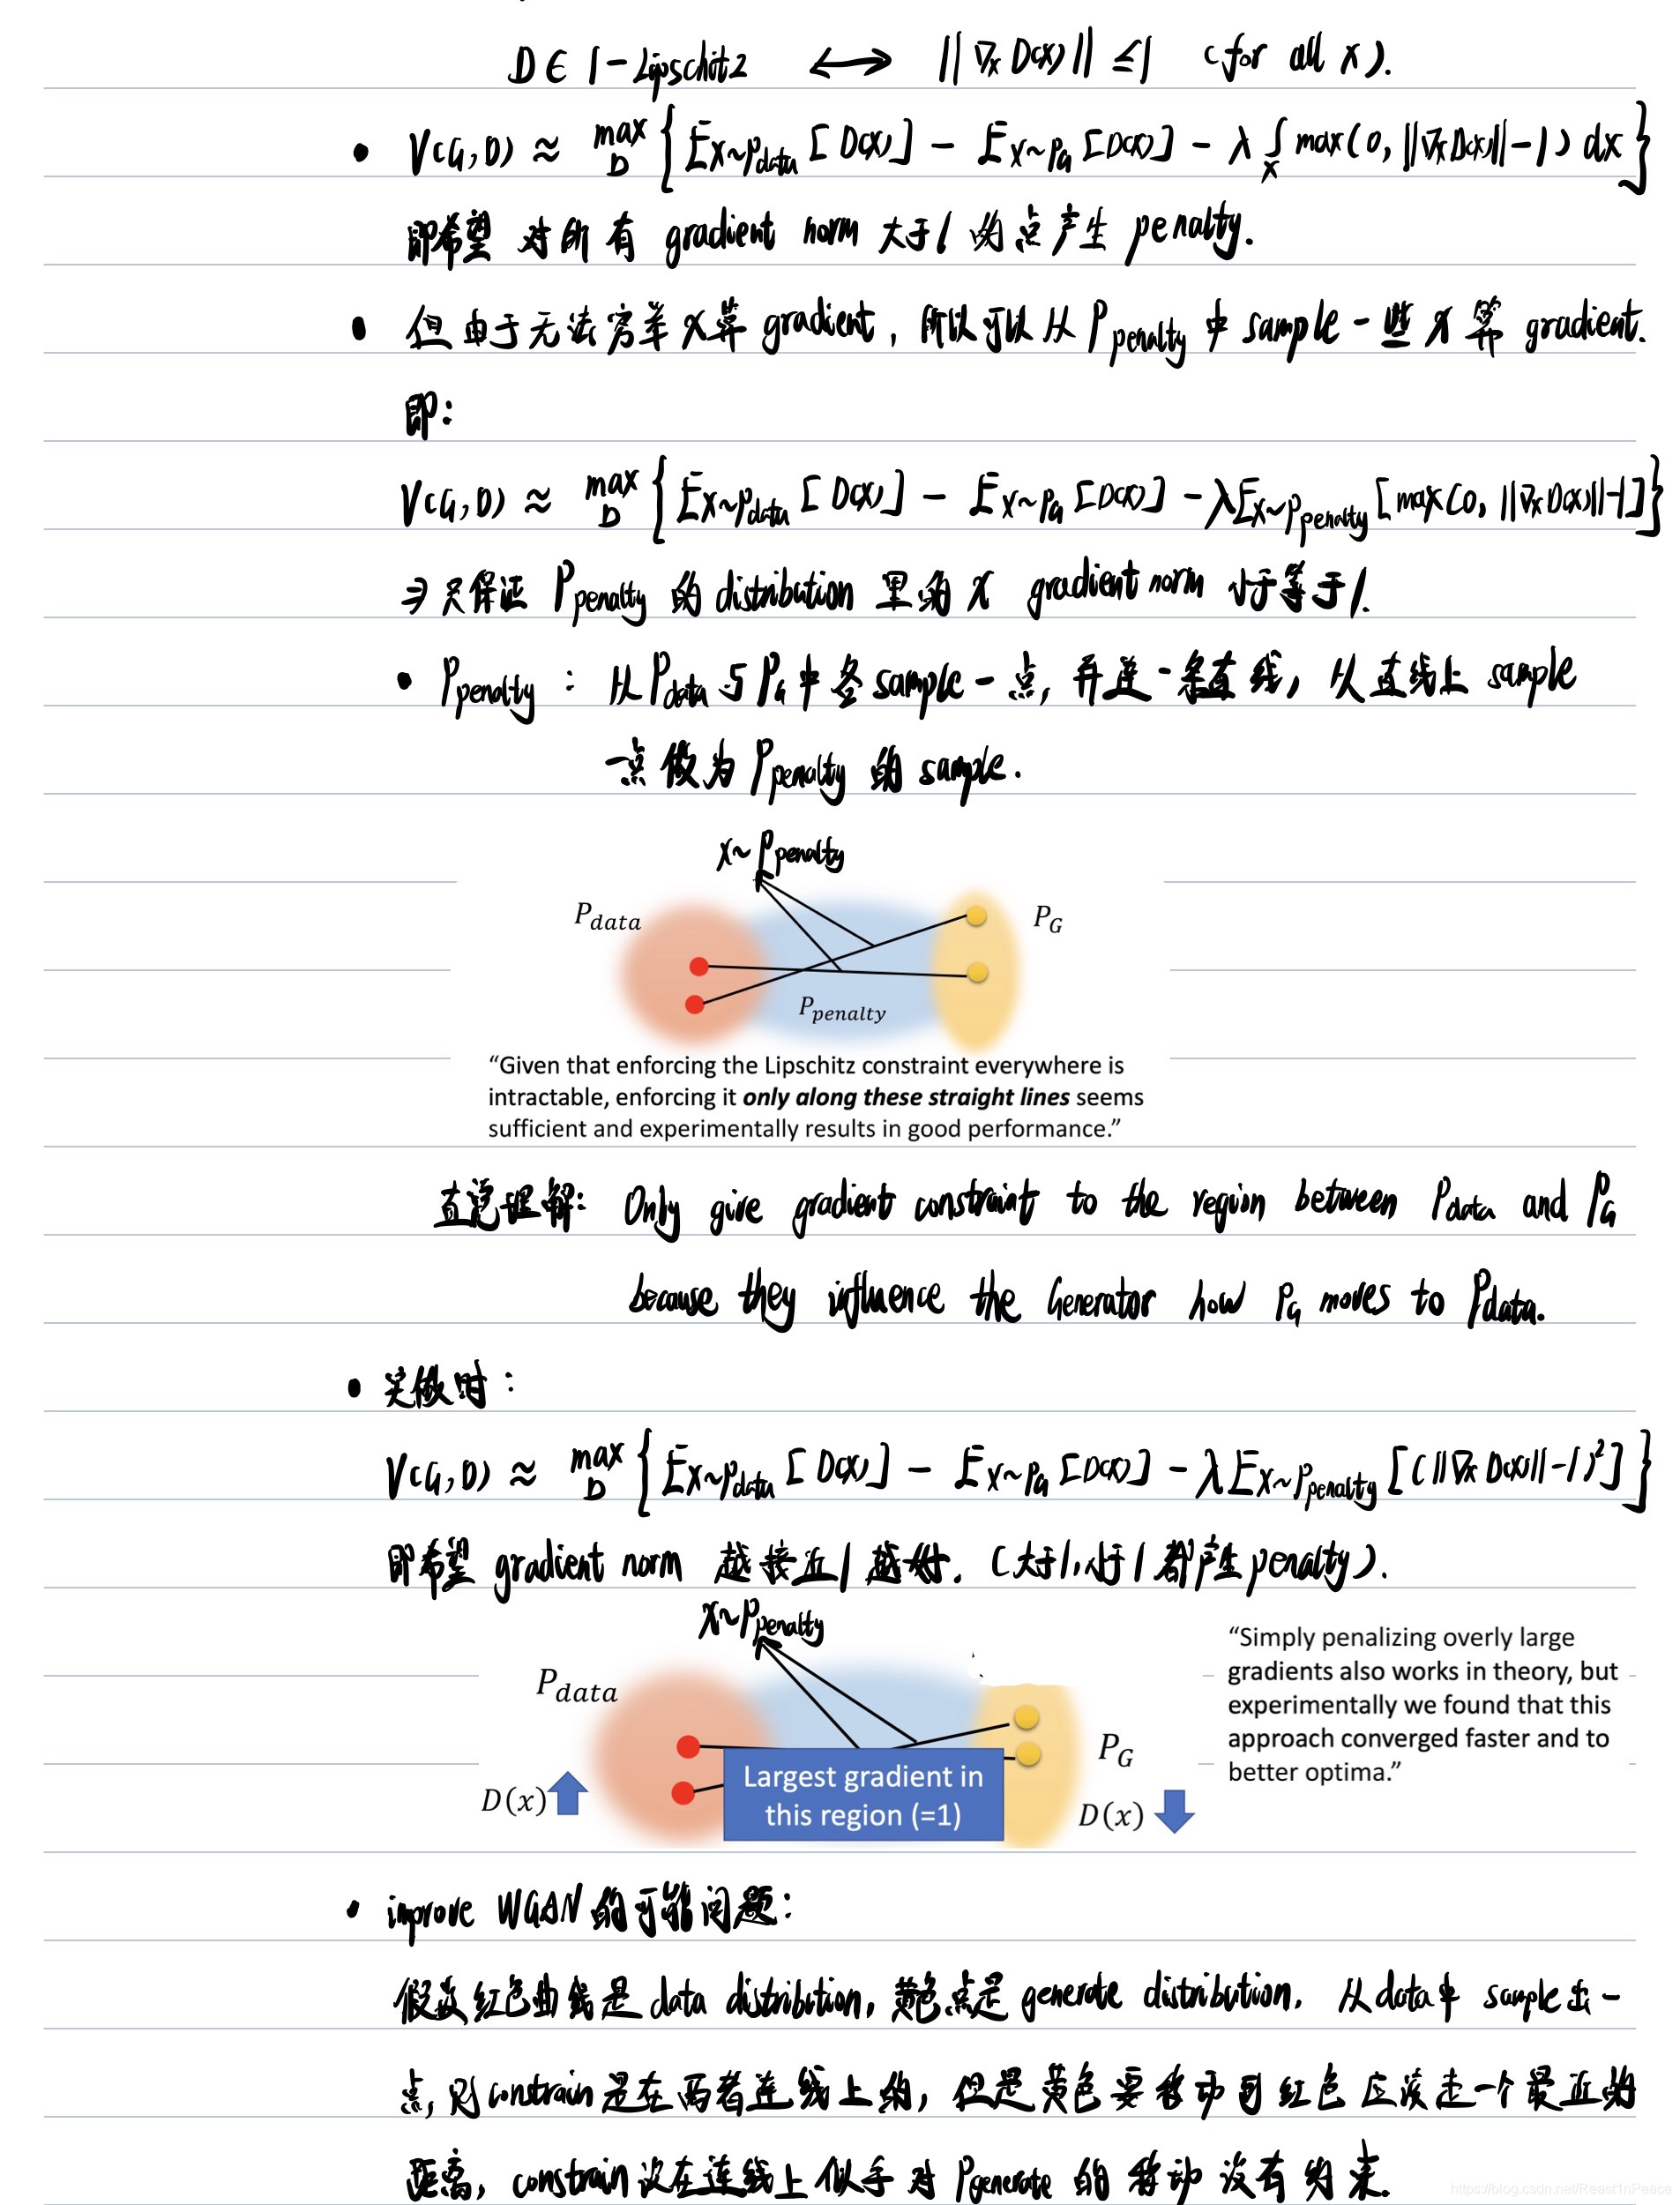 D ∈ 1-Lipschitz ⟷ ||∇x D(x)|| ≤ 1 (for all x).
• V(G,D) ≈ max_D { E_{x~Pdata}[D(x)] − E_{x~PG}[D(x)] − λ∫_x max(0, ||∇x D(x)||−1) dx }
即希望 对所有 gradient norm 大于1 的点产生 penalty.
• 但由于无法穷举x算 gradient, 所以可以从 P_penalty 中 sample 一些 x 算 gradient.
即:
V(G,D) ≈ max_D { E_{x~Pdata}[D(x)] − E_{x~PG}[D(x)] − λE_{x~Ppenalty}[max(0, ||∇x D(x)||−1] }
⇒ 只保证 P_penalty 的 distribution 里的 x gradient norm 小于等于1.
• P_penalty : 从 P_data 与 P_G 中各 sample 一点, 并连一条直线, 从直线上 sample
一点做为 P_penalty 的 sample.
x~P_penalty
P_data
P_G
P_penalty
“Given that enforcing the Lipschitz constraint everywhere is
intractable, enforcing it only along these straight lines seems
sufficient and experimentally results in good performance.”
直观理解: Only give gradient constraint to the region between P_data and P_G
because they influence the Generator how P_G moves to P_data.
• 实做时:
V(G,D) ≈ max_D { E_{x~Pdata}[D(x)] − E_{x~PG}[D(x)] − λE_{x~Ppenalty}[(||∇x D(x)||−1)²] }
即希望 gradient norm 越接近1越好. (大于1,小于1都产生penalty).
x~P_penalty
P_data
“Simply penalizing overly large
gradients also works in theory, but
experimentally we found that this
approach converged faster and to
better optima.”
P_G
Largest gradient in
this region (=1)
D(x)
D(x)
• improve WGAN 的可能问题:
假设红色曲线是 data distribution, 黄色点是 generate distribution. 从data中 sample 出一
点, 则 constrain 是在两者连线上的, 但是黄色要移动到红色应该走一个最近的
距离, constrain 设在连线上似乎对 Pgenerate 的移动没有约束.
https://blog.csdn.net/Reast1nPeace